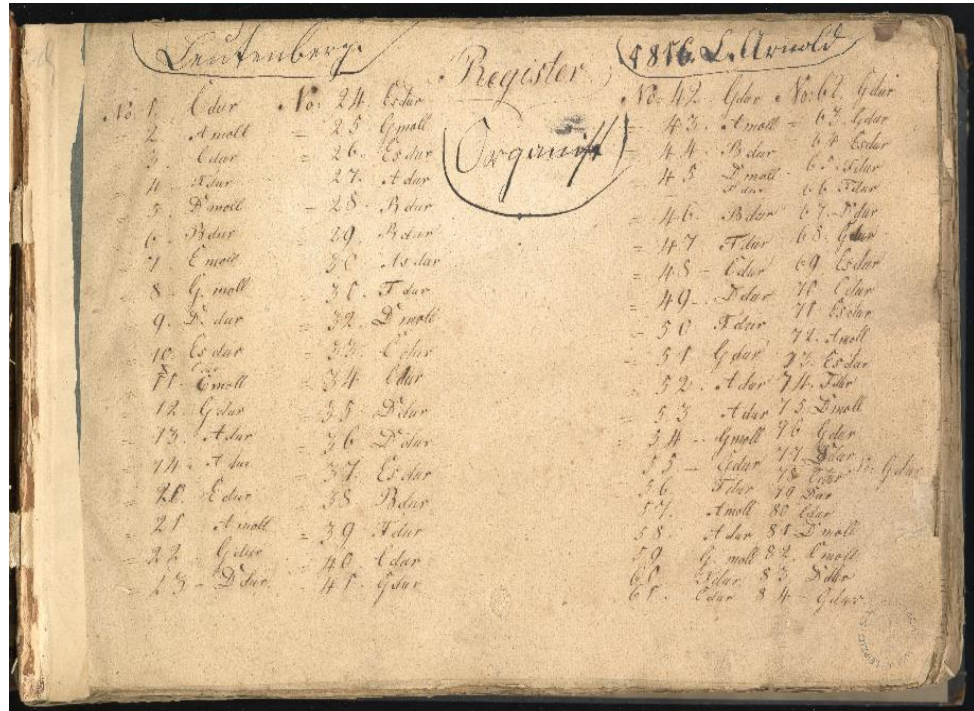 Leutenberg.
Register
1816. L. Arnold
Organist
No. 1. Cdur
2 Amoll
3. Cdur
4. Fdur
5. Dmoll
6. Bdur
7 Emoll
8. G. moll
9. D. dur
10. Esdur
11. Cmoll
12. Gdur
13. Adur
14. Adur
20. Edur
21 Amoll
22 Gdur
23 - Ddur
No: 24. Esdur
= 25 Gmoll
= 26. Esdur
27. Adur
= 28. Bdur
29. Bdur
30 Asdur
= 31. Fdur
= 32. Dmoll
= 33. Cdur
= 34 Cdur
= 35. Ddur
= 36 Ddur
= 37. Esdur
= 38 Bdur
= 39 Adur
= 40. Cdur
= 41. Gdur
No: 42. Gdur
= 43. Amoll
= 44. Bdur
= 45 Dmoll
= 46. Bdur
= 47 Fdur
= 48 - Cdur
= 49 - Ddur
= 50 Fdur
= 51 Gdur
= 52. Adur
53 Adur
54 - Gmoll
55 - Gdur
56. Fdur
57. Amoll
58. Adur
59 G. moll
60 Fdur
61. Cdur
No: 62. Gdur
= 63. Gdur
64 Esdur
65. Fdur
66. Fdur
67. Ddur
68. Gdur
69. Esdur
70 Cdur
71 Esdur
72. Amoll
73. Esdur
74. Fdur
75 Dmoll
76 Gdur
77. Ddur
78
79
80 Cdur
81 Dmoll
82. Cmoll
83. Ddur
84 - Gdur